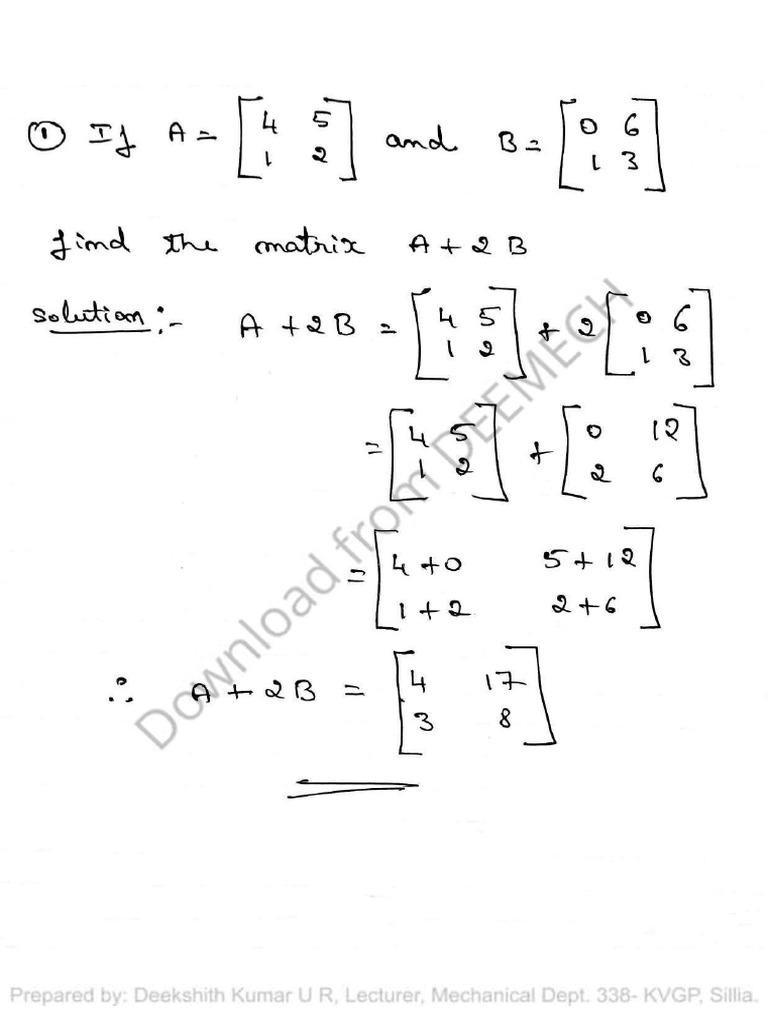 ① If A = [4 5; 1 2] and B = [0 6; 1 3]
find the matrix A + 2B
Solution :- A + 2B = [4 5; 1 2] + 2 [0 6; 1 3]
= [4 5; 1 2] + [0 12; 2 6]
= [4+0 5+12; 1+2 2+6]
∴ A + 2B = [4 17; 3 8]
Download from DEEMECH
Prepared by: Deekshith Kumar U R, Lecturer, Mechanical Dept. 338- KVGP, Sillia.